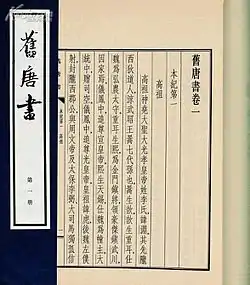 舊唐書
第一冊
舊唐書卷一
本紀第一
高祖
高祖神堯大聖大光孝皇帝姓李氏諱淵其先隴
西狄道人涼武昭王暠七代孫也暠生歆歆生重耳仕
魏為弘農太守重耳生熙為金門鎮將領豪傑鎮武川
因家焉儀鳳中追尊宣皇帝熙生天錫仕魏為幢主大
統中贈司空儀鳳中追尊光皇帝皇祖諱虎後魏左僕
射封隴西郡公與周文帝及太保李弼大司馬獨孤信